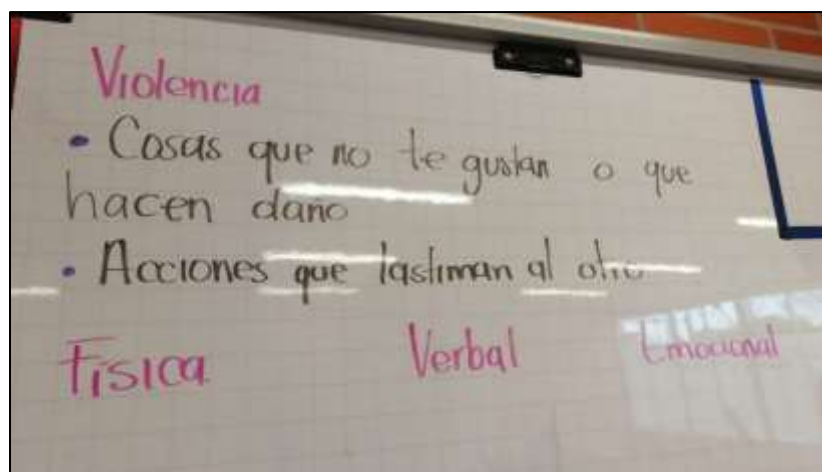 Violencia
• Cosas que no te gustan o que
hacen daño
• Acciones que lastiman al otro
Física Verbal Emocional